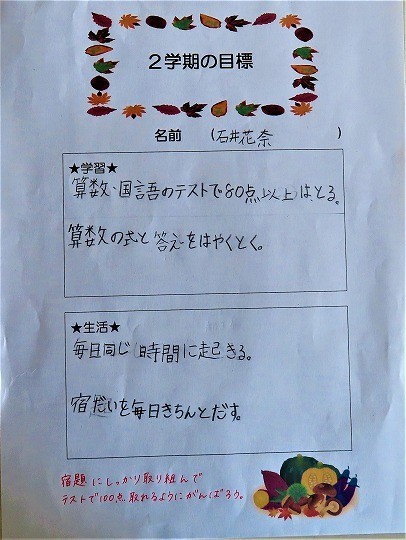 2学期の目標
名前 (石井花奈)
★学習★
算数・国語のテストで80点以上はとる。
算数の式と答えをはやくとく。
★生活★
毎日同じ時間に起きる。
宿だいを毎日きちんとだす。
宿題にしっかり取り組んで
テストで100点取れるようにがんばろう。